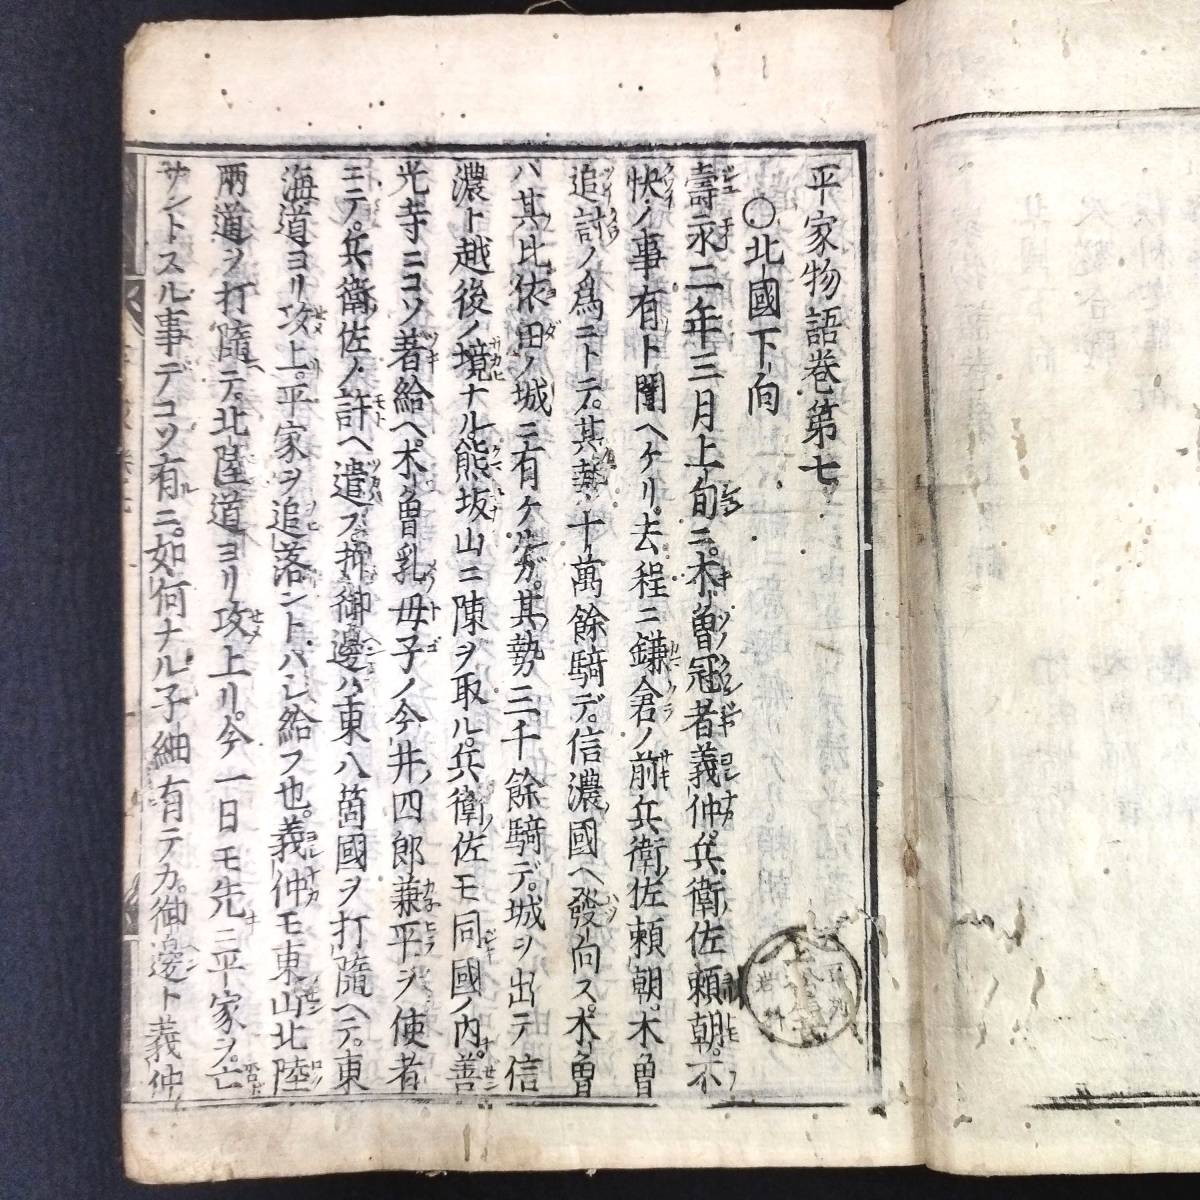 平家物語巻第七
〇北國下向
壽永二年三月上旬ニ。木曽冠者義仲。兵衛佐頼朝。不
快ノ事有ト聞ヘケリ。去程ニ鎌倉ノ前兵衛佐頼朝。木曽
追討ノ為ニトテ。其勢十萬餘騎デ。信濃國ヘ發向ス。木曽
ハ其比依田ノ城ニ有ケルガ。其勢三千餘騎デ。城ヲ出テ信
濃ト越後ノ境ナル。熊坂山ニ陳ヲ取ル。兵衛佐モ同國ノ内。善
光寺ニコソ著給ヘ。木曽乳母子ノ今井ノ四郎兼平ヲ使者
ニテ。兵衛佐ノ許ヘ遣フ。抑御邊ハ東八箇國ヲ打随ヘテ。東
海道ヨリ攻上。平家ヲ追落ントハシ給フ也。義仲モ東山北陸
両道ヲ打随テ。北陸道ヨリ攻上リ。今一日モ先ニ平家ヲ。亡
サントスル事デコソ有ニ。如何ナル子細有テカ。御邊ト義仲